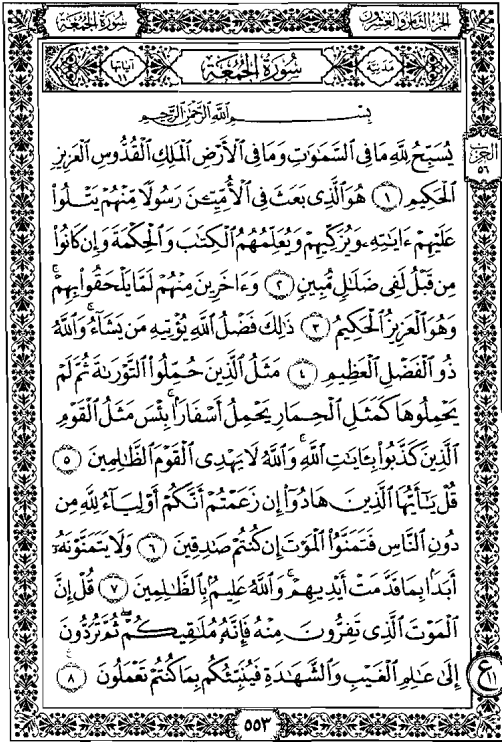 سُورَةُ الجُمُعَةِ
الجزء الثامن والعشرون
مَدَنِيَّة
سُورَةُ الجُمُعَةِ
آياتها ١١
بِسْمِ اللَّهِ الرَّحْمَٰنِ الرَّحِيمِ
الحزب ٥٦
يُسَبِّحُ لِلَّهِ مَا فِى السَّمَٰوَٰتِ وَمَا فِى الْأَرْضِ الْمَلِكِ الْقُدُّوسِ الْعَزِيزِ
الْحَكِيمِ ١ هُوَ الَّذِى بَعَثَ فِى الْأُمِّيِّـۧنَ رَسُولًا مِّنْهُمْ يَتْلُوا۟
عَلَيْهِمْ ءَايَٰتِهِۦ وَيُزَكِّيهِمْ وَيُعَلِّمُهُمُ الْكِتَٰبَ وَالْحِكْمَةَ وَإِن كَانُوا۟
مِن قَبْلُ لَفِى ضَلَٰلٍ مُّبِينٍ ٢ وَءَاخَرِينَ مِنْهُمْ لَمَّا يَلْحَقُوا۟ بِهِمْ ۚ
وَهُوَ الْعَزِيزُ الْحَكِيمُ ٣ ذَٰلِكَ فَضْلُ اللَّهِ يُؤْتِيهِ مَن يَشَآءُ ۚ وَاللَّهُ
ذُو الْفَضْلِ الْعَظِيمِ ٤ مَثَلُ الَّذِينَ حُمِّلُوا۟ التَّوْرَىٰةَ ثُمَّ لَمْ
يَحْمِلُوهَا كَمَثَلِ الْحِمَارِ يَحْمِلُ أَسْفَارًۢا ۚ بِئْسَ مَثَلُ الْقَوْمِ
الَّذِينَ كَذَّبُوا۟ بِـَٔايَٰتِ اللَّهِ ۚ وَاللَّهُ لَا يَهْدِى الْقَوْمَ الظَّٰلِمِينَ ٥
قُلْ يَٰٓأَيُّهَا الَّذِينَ هَادُوٓا۟ إِن زَعَمْتُمْ أَنَّكُمْ أَوْلِيَآءُ لِلَّهِ مِن
دُونِ النَّاسِ فَتَمَنَّوُا۟ الْمَوْتَ إِن كُنتُمْ صَٰدِقِينَ ٦ وَلَا يَتَمَنَّوْنَهُۥٓ
أَبَدًۢا بِمَا قَدَّمَتْ أَيْدِيهِمْ ۚ وَاللَّهُ عَلِيمٌۢ بِالظَّٰلِمِينَ ٧ قُلْ إِنَّ
الْمَوْتَ الَّذِى تَفِرُّونَ مِنْهُ فَإِنَّهُۥ مُلَٰقِيكُمْ ۖ ثُمَّ تُرَدُّونَ
إِلَىٰ عَٰلِمِ الْغَيْبِ وَالشَّهَٰدَةِ فَيُنَبِّئُكُم بِمَا كُنتُمْ تَعْمَلُونَ ٨
ع ١١
٥٥٣